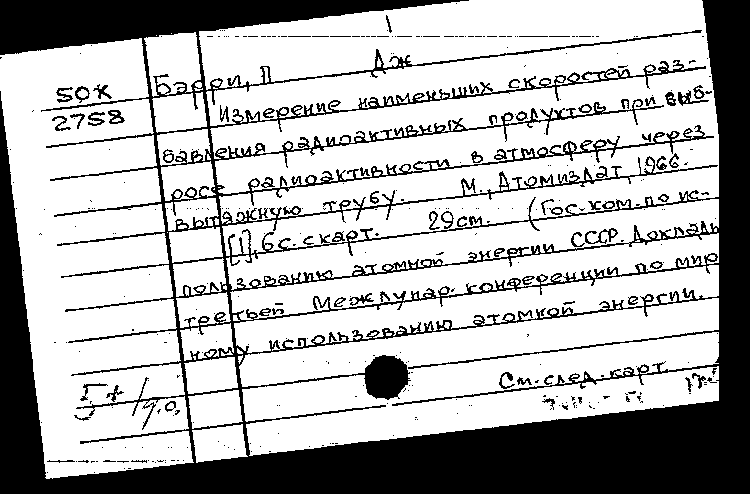 50К
2758
Бэрри, П Дж
Измерение наименьших скоростей раз-
бавления радиоактивных продуктов при выб-
росе радиоактивности в атмосферу через
вытяжную трубу. М., Атомиздат, 1966.
[1], 6 с. с карт. 29 см. (Гос. ком. по ис-
пользованию атомной энергии СССР. Доклады
третьей Междунар. конференции по мир
ному использованию атомной энергии.
См. след. карт.